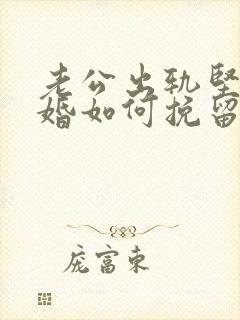 老公出轨坚
婚如何挽留
庞富东